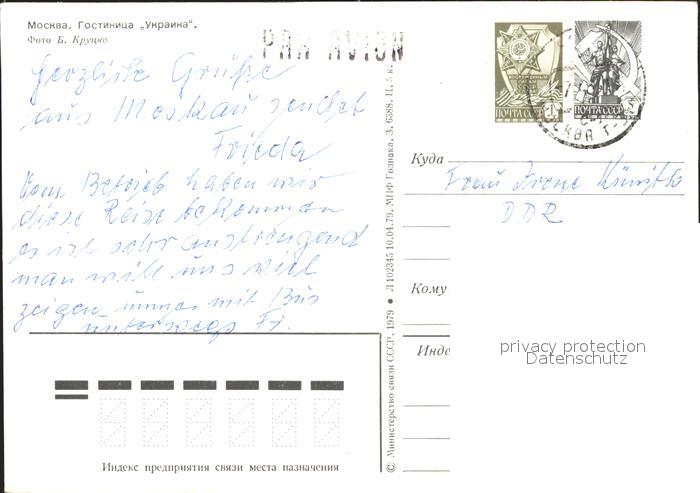 Москва. Гостиница „Украина".
Фото Б. Круцко
PAR AVION
Herzliche Grüße
aus Moskau sendet
Frieda
Vom Betrieb haben wir
diese Reise bekommen
es ist sehr anstrengend
man will uns viel
zeigen immer mit Bus
unterwegs
ПОЧТА СССР
ПОЧТА СССР
МОСКВА
Куда
Frau Irene
DDR
Кому
Инде
privacy protection
Datenschutz
© Министерство связи СССР, 1979 ● Л 102345 10.04.79. МПФ Гознака, З. 6388. Ц. 5 к.
Индекс предприятия связи места назначения